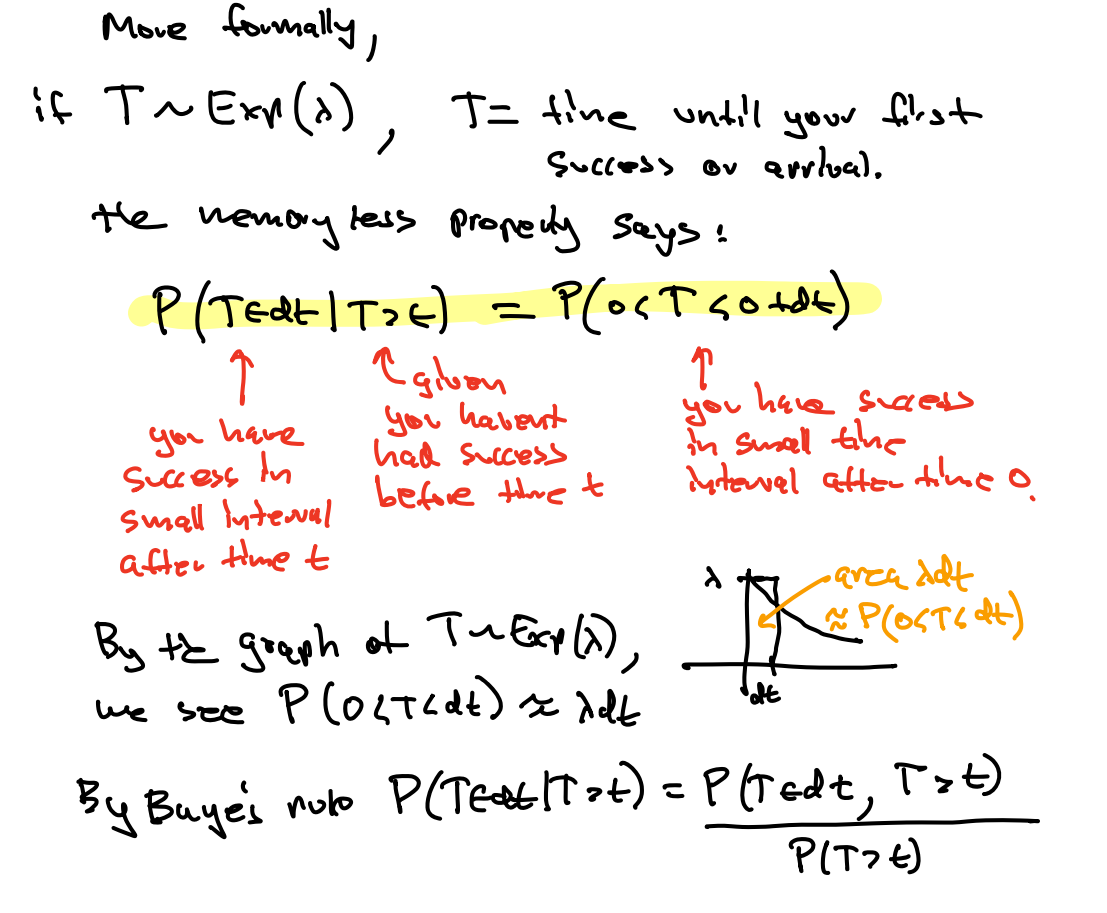 More formally,
if T ~ Exp(λ), T = time until your first
success or arrival.
the memoryless property says:
P(T∈dt | T>t) = P(0<T<0+dt)
you have
success in
small interval
after time t
given
you havent
had success
before time t
you have success
in small time
interval after time 0.
λ
area λdt
≈ P(0<T<dt)
dt
By the graph of T~Exp(λ),
we see P(0<T<dt) ≈ λdt
By Baye's rule P(T∈dt|T>t) = P(T∈dt, T>t)
P(T>t)